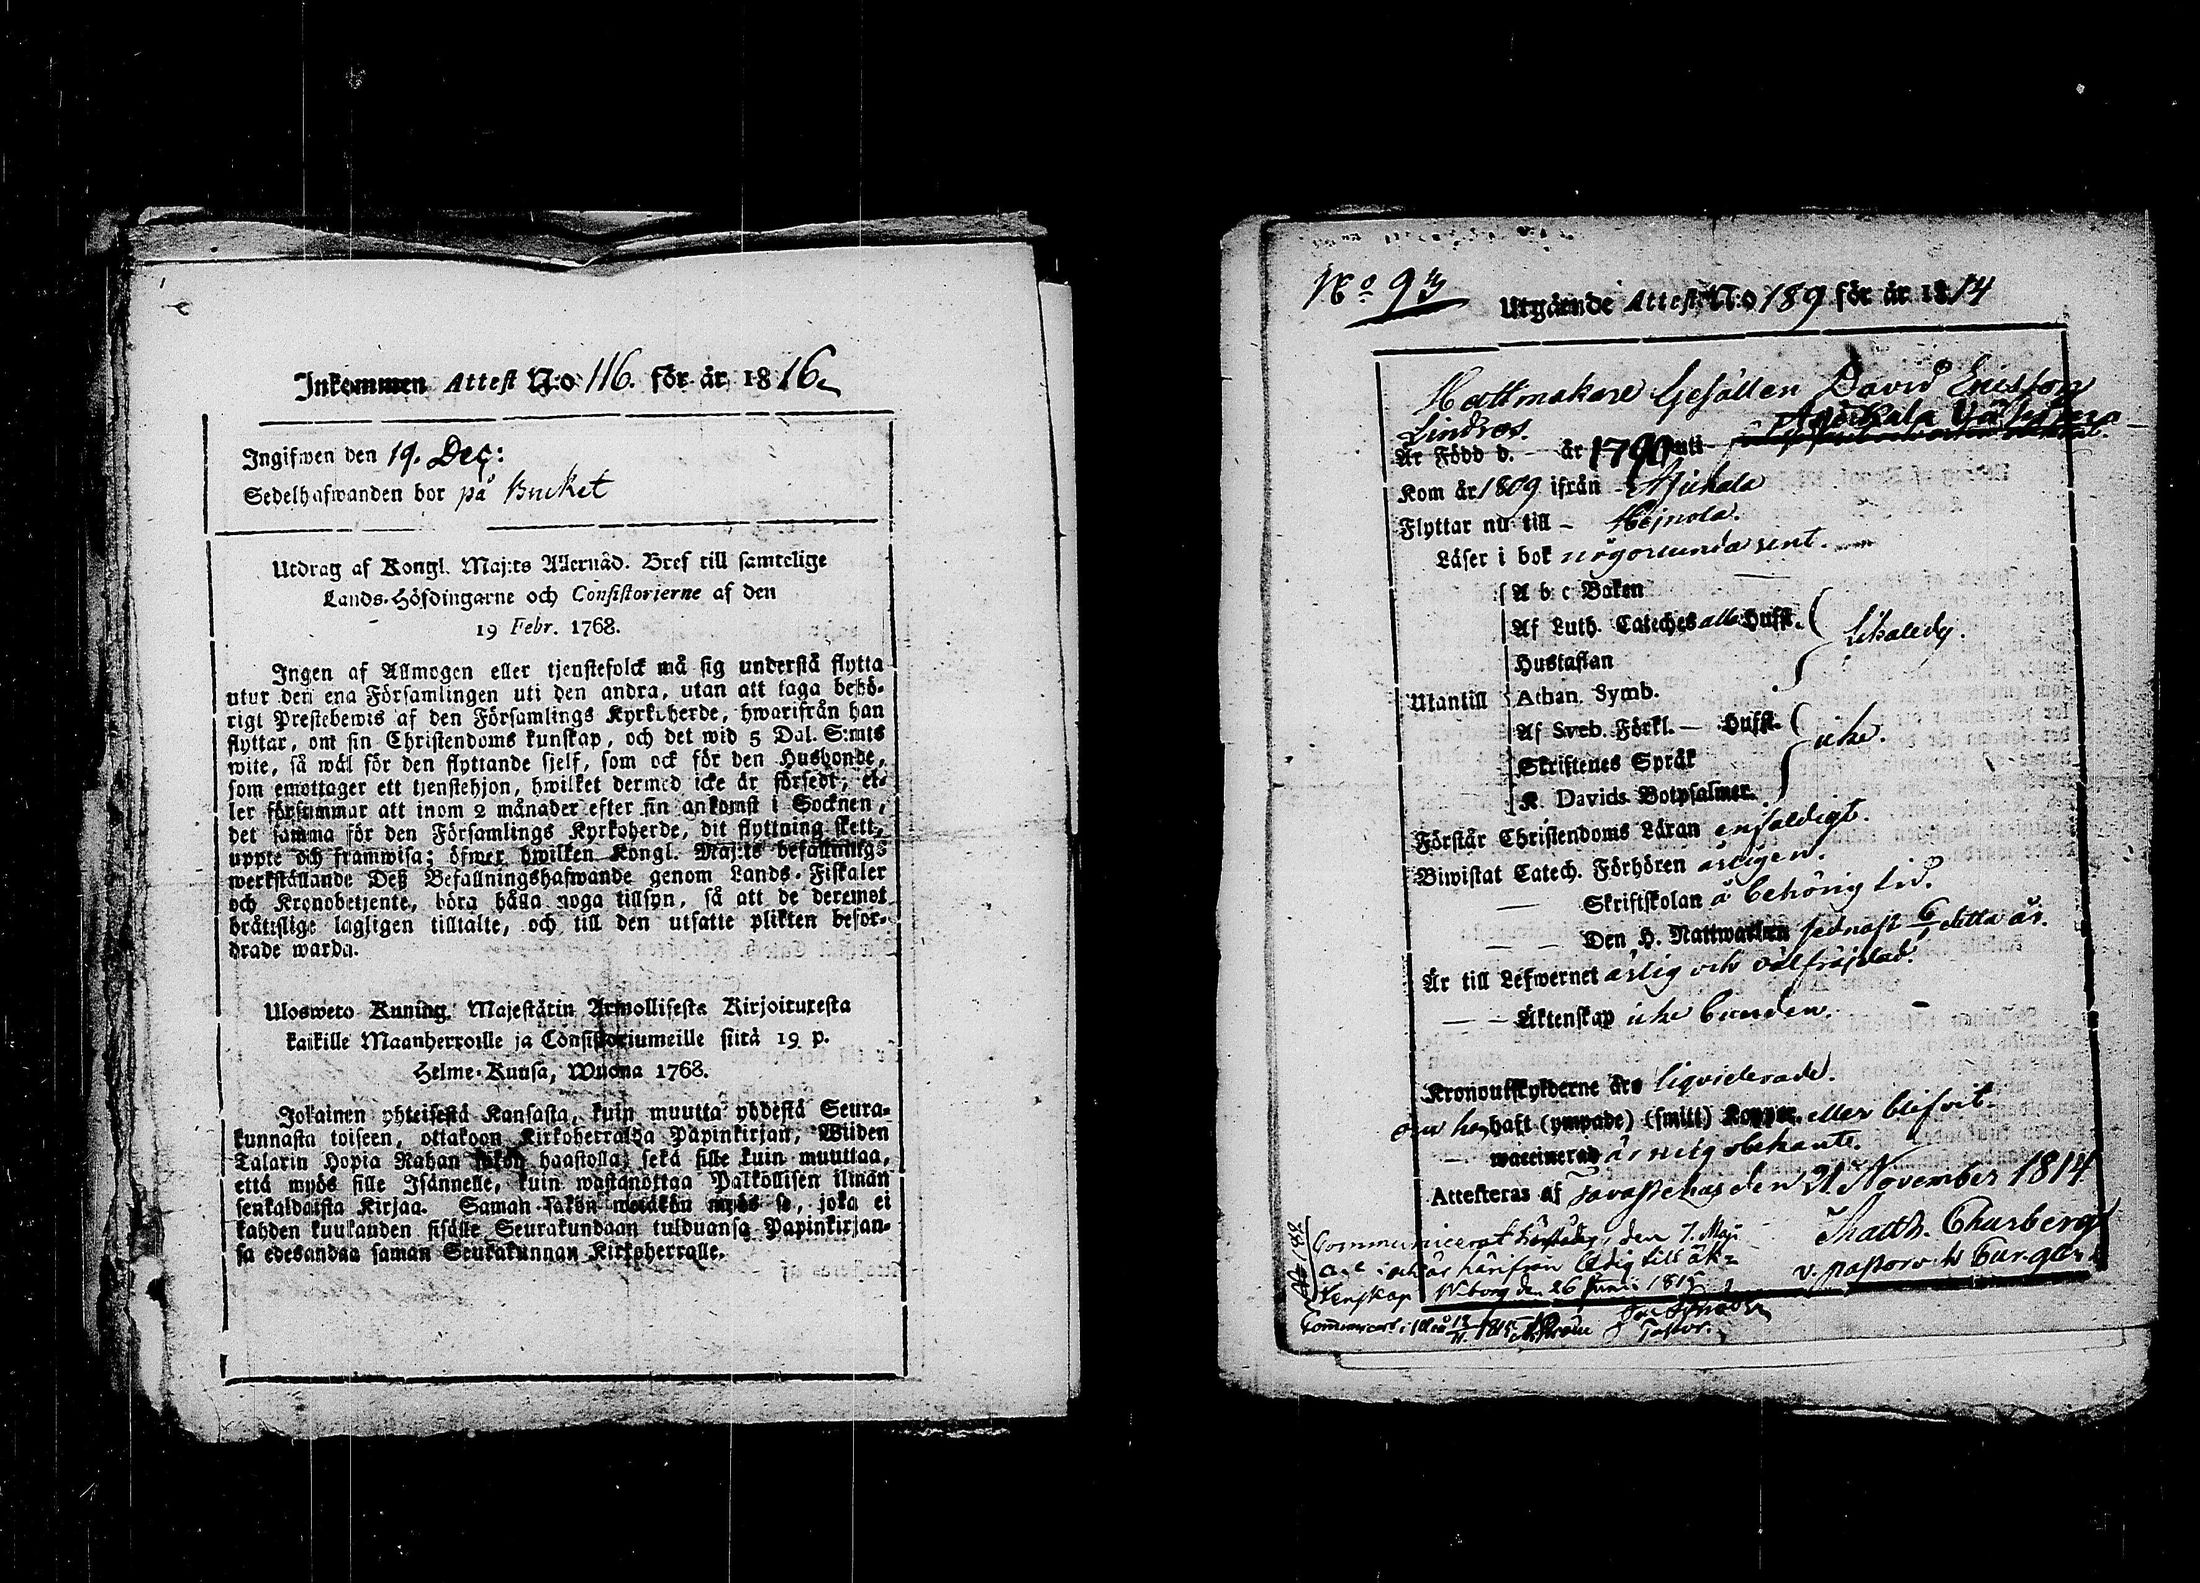 Inkommen Attest N:o 116. för år 1816.
Ingifwen den 19. Dec:
Sedelhafwanden bor på Bucket
Utdrag af Kongl. Maj:ts Allernåd. Bref till samtelige
Lands-Höfdingarne och Consistorierne af den
19 Febr. 1768.
Ingen af Allmogen eller tjenstefolck må sig understå flytta
utur den ena Församlingen uti den andra, utan att taga behö-
rigt Prestebewis af den Församlings Kyrkoherde, hwarifrån han
flyttar, om sin Christendoms kunskap, och det wid 5 Dal. S:mts
wite, så wäl för den flyttande sjelf, som ock för den Husbonde,
som emottager ett tjenstehjon, hwilket dermed icke är försedt, el-
ler försummar att inom 2 månader efter sin ankomst i Socknen,
det samma för den Församlings Kyrkoherde, dit flyttning skett,
uppte och framwisa; öfwer hwilken Kongl. Maj:ts befallnings
werkställande Deß Befallningshafwande genom Lands-Fiskaler
och Kronobetjente, böra hålla noga tillsyn, så att de deremot
bråtslige lagligen tilltalte, och till den utsatte plikten befor-
drade warda.
Ulosweto Kuning. Majestätin Armollisesta Kirjoituxesta
kaikille Maanherroille ja Consistoriumeille siitä 19 p.
Helme-Kuusa, Wuona 1768.
Jokainen yhteisestä Kansasta, kuin muutta yhdestä Seura-
kunnasta toiseen, ottakoon Kirkoherralda Papinkirjan, Wiiden
Talarin Hopia Rahan sakon haastolla, sekä sille kuin muuttaa,
että myös sille Isännelle, kuin wastanottaa Palkollisen ilman
senkaldaista Kirjaa. Saman sakon wetäkön myös se, joka ei
kahden kuukauden sisälle Seurakundaan tulduansa Papinkirjan-
sa edesandaa saman Seurakunnan Kirkoherralle.
No 93
Utgående Attest N:o 189 för år 1814
Hattmakare Gesällen David Ericsson
Lindros.
Är Född d. — år 1790 uti
Kom år 1809 ifrån
Flyttar nu till – Hejnola.
Läser i bok någorlunda rent.
A b c Boken
Af Luth. Cateches alla Hufst.
Hustaflan
Utantill Athan. Symb.
Af Sveb. Förkl. — Hufst. icke.
Skriftenes Språk
K. Davids Botpsalmer.
Förstår Christendoms Läran enfaldigt.
Biwistat Catech. Förhören årligen.
— Skriftskolan å behörig tid.
— — Den H. Nattwarden sednast detta år.
Är till Lefwernet ärlig och välfrejdad
— — Äktenskap icke bunden.
Kronoutskylderne äro liqviderade.
om han haft (ympade) (smitt) Koppor. eller blifvit
— waccinerad är mig obekant.
Attesteras af Tavastehus den 21 November 1814
Matth. Churberg
v. pastor
Communicerat den 7. Maji
och är härifrån ledig till äk-
tenskap Wiborg den 26 Junii 1815
Pastor.